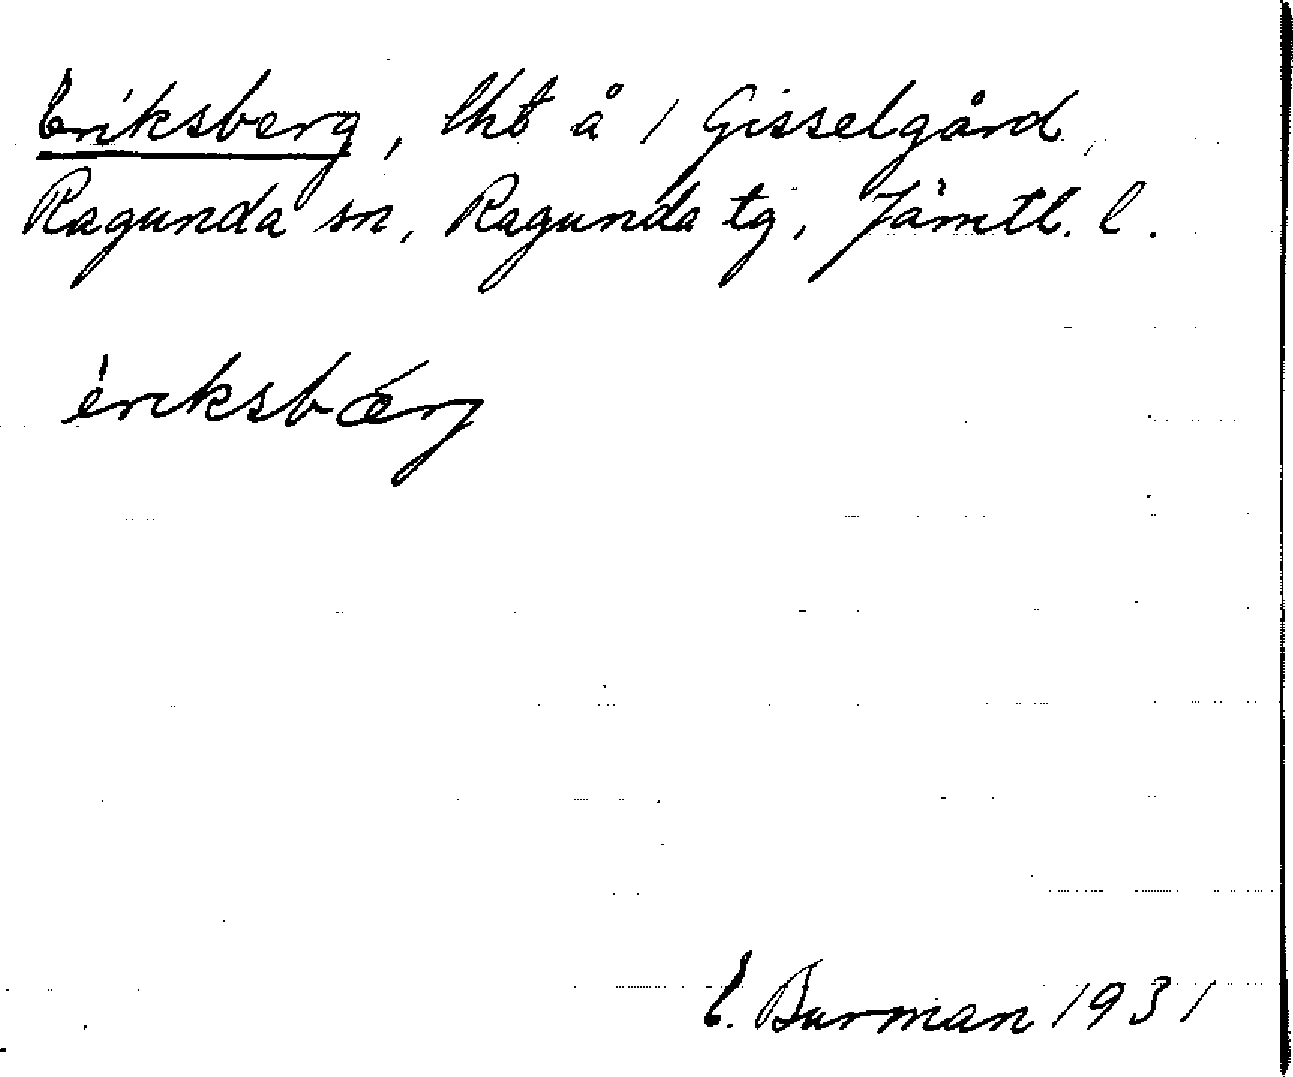 Eriksberg, lht å 1 Gisselgård,
Ragunda sn, Ragunda tg, Jämtl. l.
èriksbǽrj
E. Burman 1931